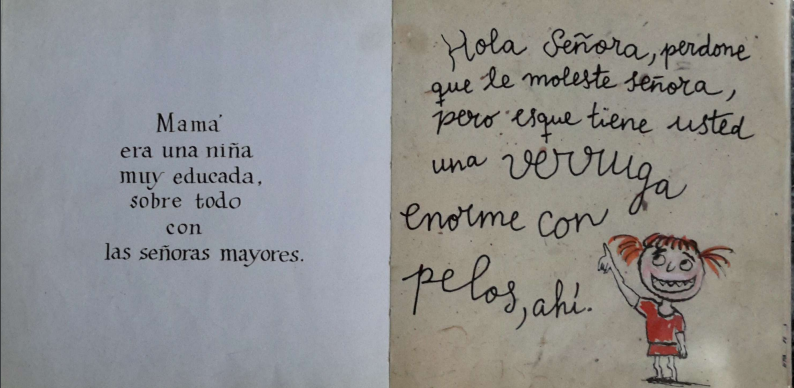 Mamá
era una niña
muy educada,
sobre todo
con
las señoras mayores.
Hola Señora, perdone
que le moleste señora,
pero esque tiene usted
una verruga
enorme con
pelos, ahí.